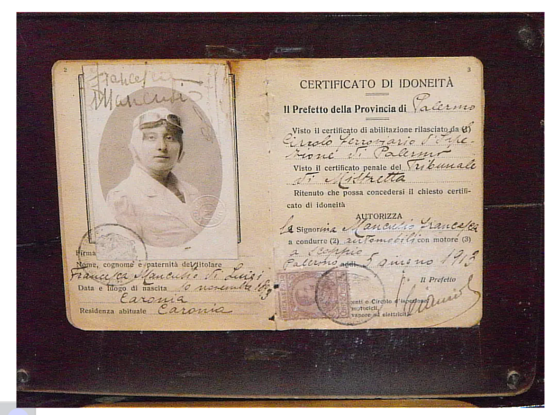 2
Francesca
Mancuso
Firma
Nome, cognome e paternità del titolare
Francesca Mancuso di Luigi
Data e luogo di nascita 10 novembre
Caronia
Residenza abituale Caronia
3
CERTIFICATO DI IDONEITÀ
Il Prefetto della Provincia di Palermo
Visto il certificato di abilitazione rilasciato da
Circolo ferroviario d'Ispe-
zione di Palermo
Visto il certificato penale del Tribunale
di Mistretta
Ritenuto che possa concedersi il chiesto certifi-
cato di idoneità
AUTORIZZA
la Signorina Mancuso Francesca
a condurre (2) automobili con motore (3)
a scoppio
Palermo addì 5 giugno 1913
Il Prefetto